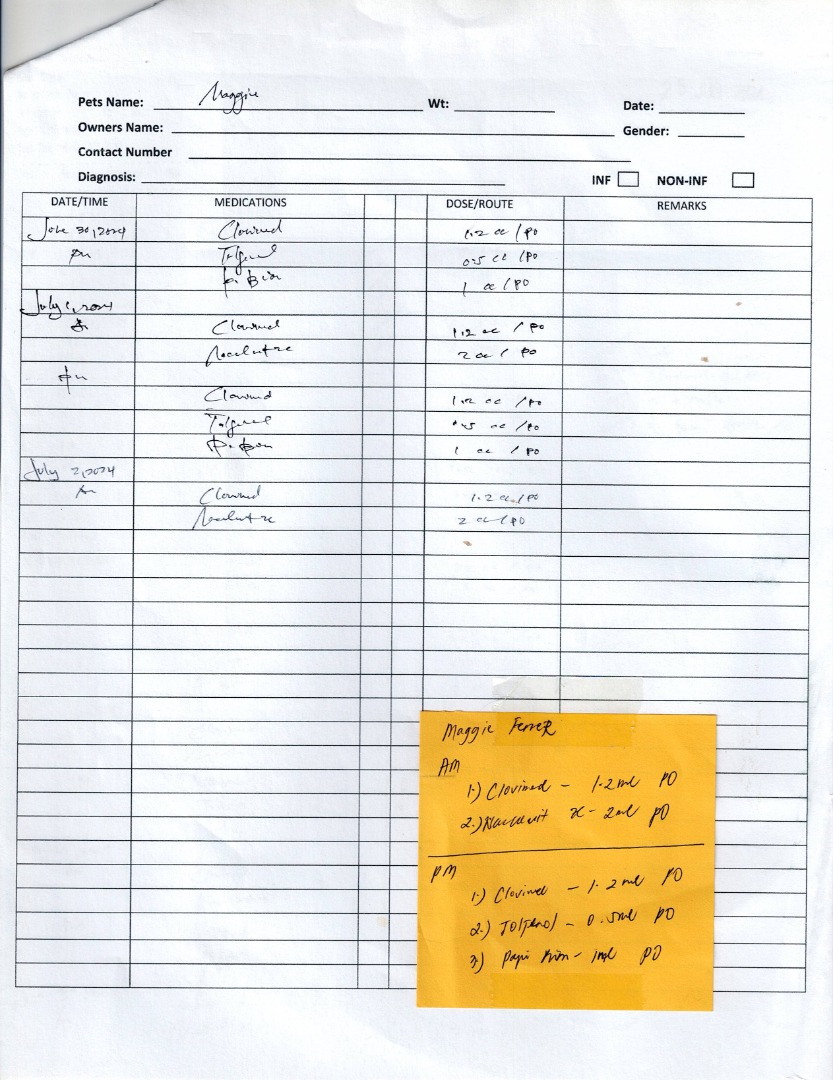 Pets Name: Maggie Wt: Date:
Owners Name: Gender:
Contact Number
Diagnosis: INF NON-INF
DATE/TIME MEDICATIONS DOSE/ROUTE REMARKS
June 30, 2024 Clovimed 1.2 cc / PO
PM Tolfenol 0.5 cc / PO
Papi Bion 1 cc / PO
July 1, 2024
Clovimed 1.2 cc / PO
2 cc / PO
PM
Clovimed 1.2 cc / PO
Tolfenol 0.5 cc / PO
1 cc / PO
July 2, 2024
Clovimed 1.2 cc / PO
2 cc / PO
Maggie Ferrer
AM
1.) Clovimed - 1.2 ml PO
2.) - 2ml PO
PM
1.) Clovimed - 1.2 ml PO
2.) Tolfenol - 0.5ml PO
3.) Papi - 1ml PO